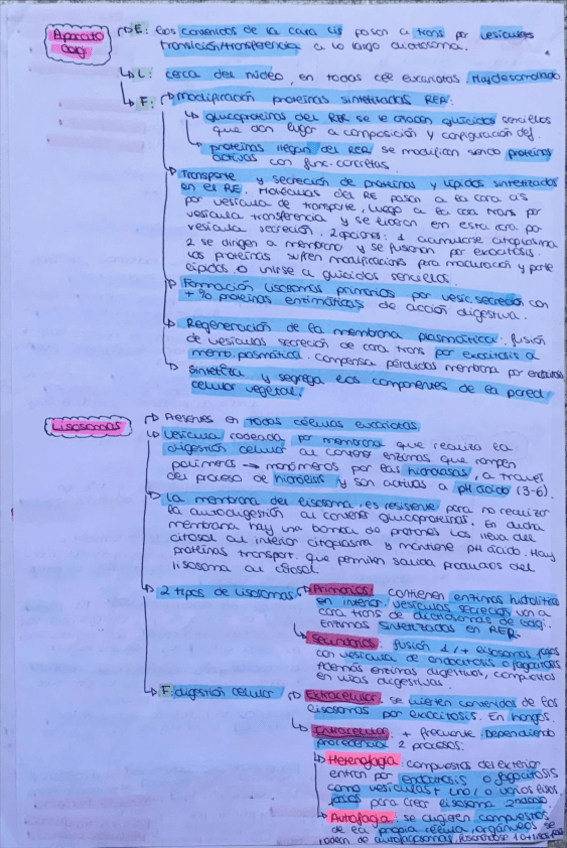 Aparato Golgi
E: Los contenidos de la cara cis pasan a trans por vesículas
transición/transferencia a lo largo dictiosoma.
L: cerca del núcleo, en todas cél eucariotas. Muy desarrollado
F: modificación proteínas sintetizadas RER:
glucoproteínas del RER se le añaden glúcidos sencillos
que dan lugar a composición y configuración def.
proteínas llegan del RER se modifican siendo proteínas
activas con func. concretas.
Transporte y secreción de proteínas y lípidos sintetizados
en el RE. Moléculas del RE pasan a la cara cis
por vesícula de transporte, luego a la cara trans por
vesícula transferencia y se liberan en esta cara por
vesícula secreción. 2 opciones: 1 acumularse citoplasma
2 se dirigen a membrana y se fusionan por exocitosis.
Las proteínas sufren modificaciones para maduración y parte
lípidos o unirse a glúcidos sencillos.
Formación lisosomas primarios por vesic. secreción con
+ % proteínas enzimáticas de acción digestiva.
Regeneración de la membrana plasmática: fusión
de vesículas secreción de cara trans por exocitosis a
memb. plasmática. Compensa pérdidas membrana por endocitosis
Sintetiza y segrega los componentes de la pared
celular vegetal.
Lisosomas
Presentes en todas células eucariotas
Vesícula rodeada por membrana que realiza la
digestión celular al contener enzimas que rompen
polímeros → monómeros por las hidrolasas, a través
del proceso de hidrólisis y son activas a pH ácido (3-6).
La membrana del lisosoma es resistente para no realizar
la autodigestión al contener glucoproteínas. En dicha
membrana hay una bomba de protones los lleva del
citosol al interior citoplasma y mantiene pH ácido. Hay
proteínas transport. que permiten salida productos del
lisosoma al citosol.
2 tipos de lisosomas
Primarios: contienen enzimas hidrolíticas
en interior. vesículas secreción van a
cara trans de dictiosomas de Golgi.
Enzimas sintetizadas en RER.
Secundarios: fusión 1/+ lisosomas
con vesícula de endocitosis o fagocitosis
Además enzimas digestivas, compuestos
en vías digestivas.
F: digestión celular
Extracelular: se vierten contenidos de los
lisosomas por exocitosis. En hongos.
Intracelular: + frecuente. Dependiendo
procedencia 2 procesos:
Heterofagia: compuestos del exterior
entran por endocitosis o fagocitosis
como vesículas + uno/o varios lisos.
para crear lisosoma 2nario.
Autofagia: se digieren compuestos
de la propia célula, orgánulos se
rodean de